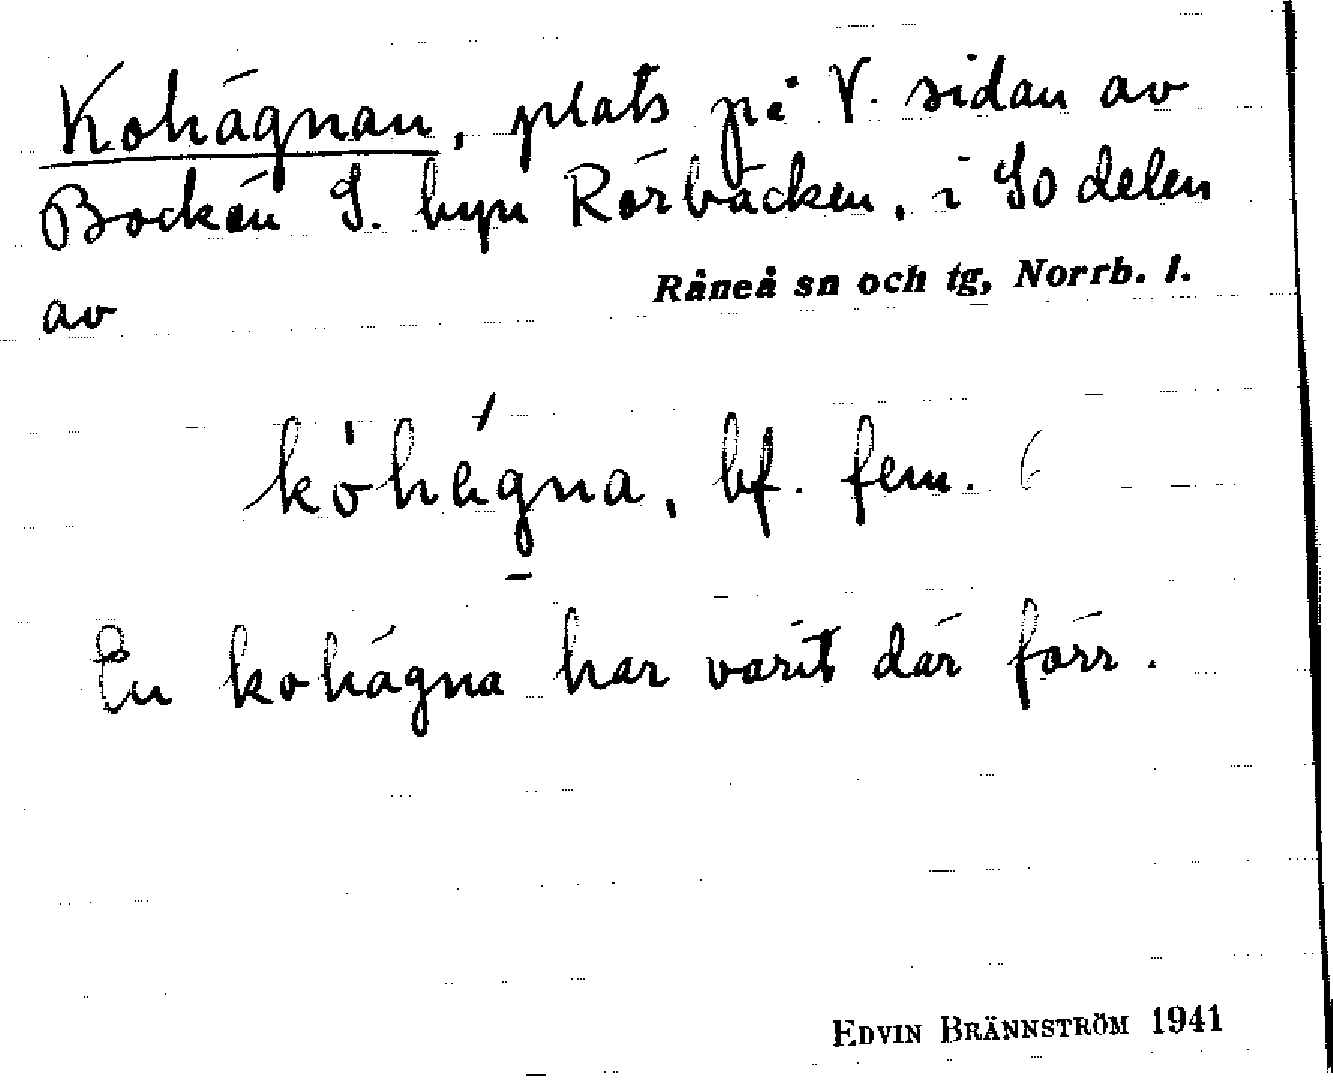 Kohägnan, plats på V. sidan av
Bocken S. byn Rörbäcken, i SO delen
av Råneå sn och tg, Norrb. l.
kohägna, bf. fem.
En kohägna har varit där förr.
EDVIN BRÄNNSTRÖM 1941